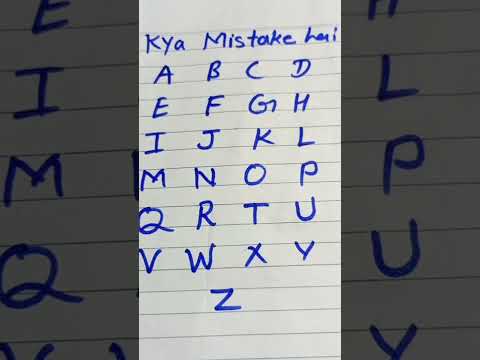 Kya Mistake hai
A B C D
E F G H
I J K L
M N O P
Q R T U
V W X Y
Z